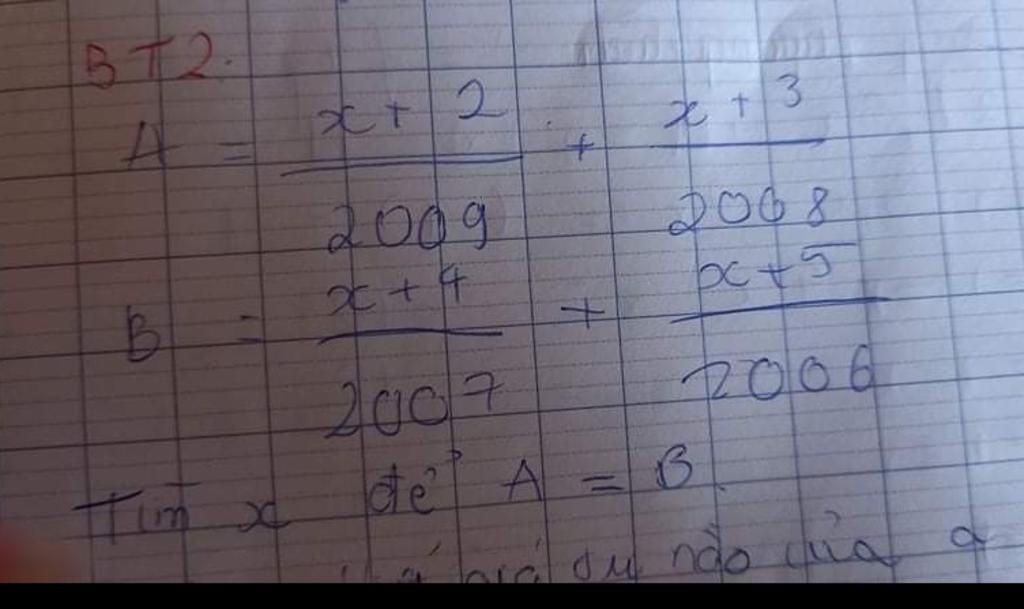 BT2.
A = x + 2 / 2009 + x + 3 / 2008
B = x + 4 / 2007 + x + 5 / 2006
Tìm x để A = B.
nào của a